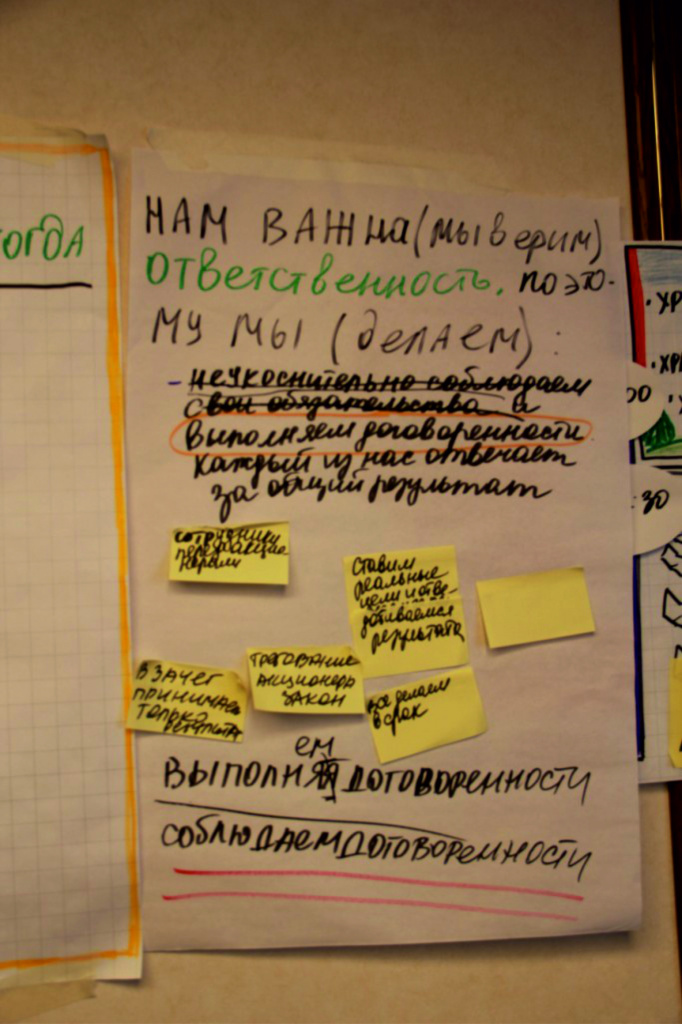 ТОГДА
НАМ ВАЖНА (мы верим)
ответственность, поэто-
му мы (делаем):
- неукоснительно соблюдаем
свои обязательства и
выполняем договоренности
каждый из нас отвечает
за общий результат
сотрудники
нормы
ставим
реальные
цели и
добиваемся
результата
В ЗАЧЕТ
ПРИНИМАЕМ
ТОЛЬКО
РЕЗУЛЬТАТ
ТРЕБОВАНИЕ
АКЦИОНЕРА
ЗАКОН
все делаем
в срок
ем
ВЫПОЛНЯ ДОГОВОРЕННОСТИ
СОБЛЮДАЕМ ДОГОВОРЕННОСТИ
· ХР
· ХРИ
00
:30